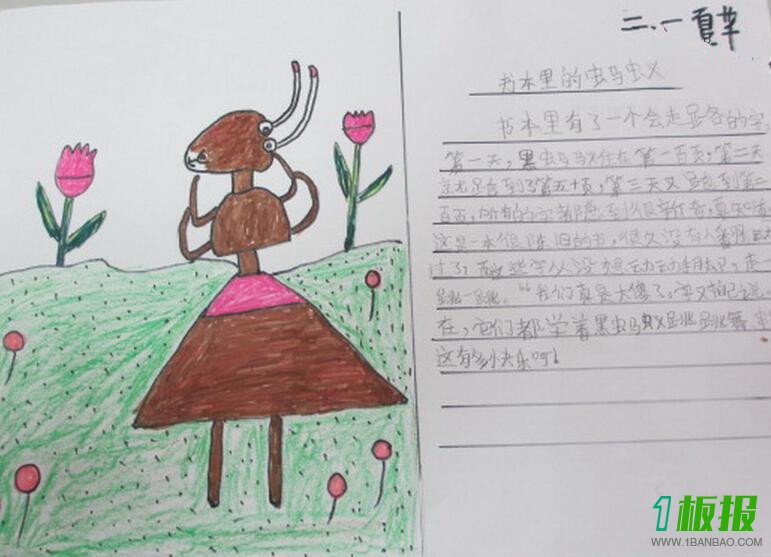 二.一 夏苹
书本里的虫马虫义
书本里有了一个会走路的字,
第一天,黑虫马虫义住在第一百页,第二天
就跑到了第五十页,第三天又跑到第二
百页,所有的字都感到很新奇,要知道
这是一本很陈旧的书,很久没有人翻
过了 这些字从没想动动脚,走一
跳一跳。“我们真是太傻了。字
在,它们都学着黑虫马虫义跳跳舞,
这有多快乐呀!
1板报
WWW.1BANBAO.COM